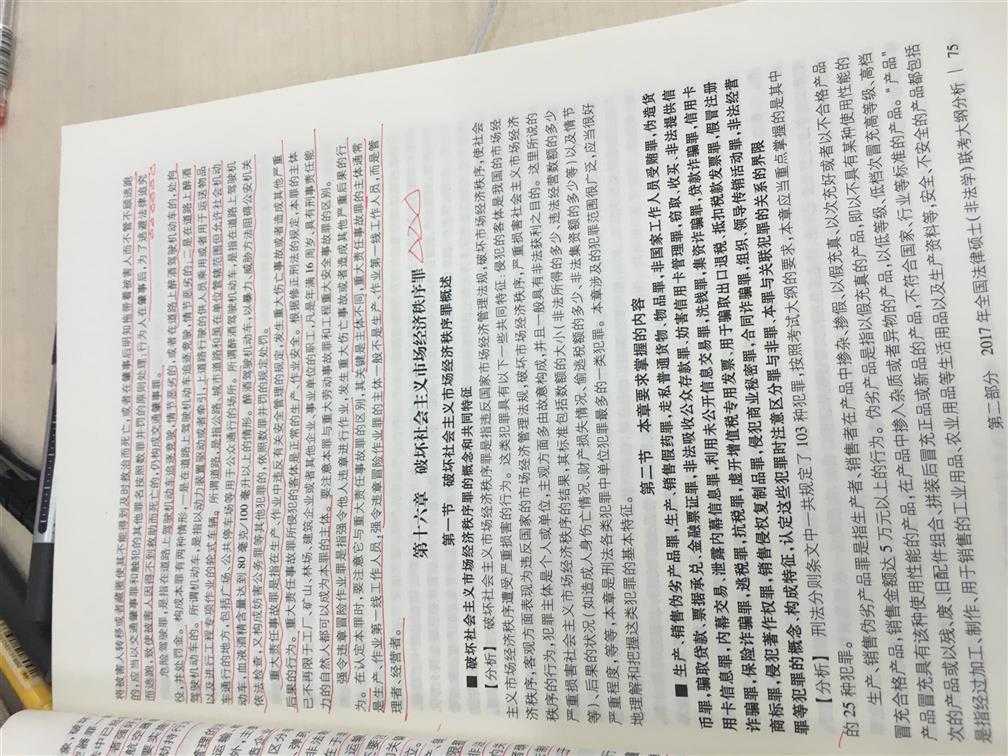 将被害人转移或者藏匿使其不能得到及时救治而死亡,或者在肇事后明知拖带着被害人而不管不顾逃跑
的,应当以交通肇事罪和触犯的其他罪名按照数罪并罚的原则处理,行为人在肇事后,为了逃避法律追究
而逃跑,致使被害人因得不到救助而死亡的,仍构成交通肇事罪。
危险驾驶罪,是指在道路上驾驶机动车追逐竞驶,情节恶劣的,或者在道路上醉酒驾驶机动车的,处拘
役,并处罚金。构成本罪有两种情形,一是在道路上驾驶机动车追逐竞驶,情节恶劣的;二是在道路上醉酒
驾驶机动车的。所谓机动车,是指以动力装置驱动或者牵引,上道路行驶的供人员乘用或者用于运送物品
以及进行工程专项作业的轮式车辆。所谓道路,是指公路、城市道路和虽在单位管辖范围但允许社会机动
车通行的地方,包括广场、公共停车场等用于公众通行的场所。所谓醉酒驾驶机动车,是指在道路上驾驶机
动车,血液酒精含量达到 80 毫克/100 毫升以上的。醉酒驾驶机动车,以暴力、威胁方法阻碍公安机关
依法检查,又构成妨害公务罪等其他犯罪的,依照数罪并罚的规定处罚。
重大责任事故罪是指在生产、作业中违反有关安全管理的规定,发生重大伤亡事故或者造成其他严重
后果的行为。重大责任事故罪所侵犯的客体是正常的生产、作业安全。根据修正刑法的规定,本罪的主体
已不再限于工厂、矿山、林场、建筑企业或者其他企业、事业单位的职工,凡是年满 16 周岁,具有刑事责任能
力的自然人都可以成为本罪的主体。要注意本罪与重大劳动事故罪和工程重大安全事故罪的区别。
强令违章冒险作业罪是指强令他人违章进行作业,发生重大伤亡事故或者造成其他严重后果的行
为。在认定本罪时,要注意它与重大责任事故罪的区别,其关键是主体不同,重大责任事故罪的主体通常
是生产、作业第一线工作人员,强令违章冒险作业罪的主体一般不是生产、作业第一线工作人员,而是管
理者、经营者。
第十六章 破坏社会主义市场经济秩序罪
第一节 破坏社会主义市场经济秩序罪概述
■ 破坏社会主义市场经济秩序罪的概念和共同特征
【分析】 破坏社会主义市场经济秩序罪是指违反国家市场经济管理法规,破坏市场经济秩序,使社会
主义市场经济秩序遭受严重损害的行为。这类犯罪具有以下一些共同特征,侵犯的客体是我国的市场经
济秩序,客观方面表现为违反国家的市场经济管理法规,破坏市场经济秩序,严重损害社会主义市场经济
秩序的行为,犯罪主体是个人或单位,主观方面多由故意构成,并且一般具有非法获利之目的。这里所说的
严重损害社会主义市场经济秩序的结果,其标准包括数额的大小(非法所得的多少、违法经营数额的多少
等)、后果的状况(如造成人身伤亡情况、财产损失情况、偷逃税额的多少、非法集资额的多少等)以及情节
严重程度,等等,本章是刑法各类犯罪中单位犯罪最多的一类犯罪。本章涉及的犯罪范围很广泛,应当很好
地理解和把握这类犯罪的基本特征。
第二节 本章要求掌握的内容
■ 生产、销售伪劣产品罪,生产、销售假药罪,走私普通货物、物品罪,非国家工作人员受贿罪,伪造货
币罪,骗取贷款、票据承兑、金融票证罪,非法吸收公众存款罪,妨害信用卡管理罪,窃取、收买、非法提供信
用卡信息罪,内幕交易、泄露内幕信息罪,利用未公开信息交易罪,洗钱罪,集资诈骗罪,贷款诈骗罪,信用卡
诈骗罪,保险诈骗罪,逃税罪,抗税罪,虚开增值税专用发票、用于骗取出口退税、抵扣税款发票罪,假冒注册
商标罪,侵犯著作权罪,销售侵权复制品罪,侵犯商业秘密罪,合同诈骗罪,组织、领导传销活动罪,非法经营
罪等犯罪的概念、构成特征,认定这些犯罪时注意区分罪与非罪、本罪与关联犯罪的关系的界限
【分析】 刑法分则条文中一共规定了 103 种犯罪,按照考试大纲的要求,本章应当重点掌握的是其中
的 25 种犯罪。
生产、销售伪劣产品罪是指生产者、销售者在产品中掺杂、掺假,以假充真,以次充好或者以不合格产品
冒充合格产品,销售金额达 5 万元以上的行为。伪劣产品是指以假充真的产品,即以不具有某种使用性能的
产品冒充具有该种使用性能的产品,在产品中掺入杂质或者异物的产品,以低等级、低档次冒充高等级、高档
次的产品或以残、废、旧配件组合、拼装后冒充正品或新品的产品,不符合国家、行业等标准的产品。“产品”
是指经过加工、制作、用于销售的工业用品、农业用品等生活用品以及生产资料等,安全、不安全的产品都包括
第二部分 2017年全国法律硕士(非法学)联考大纲分析 | 75